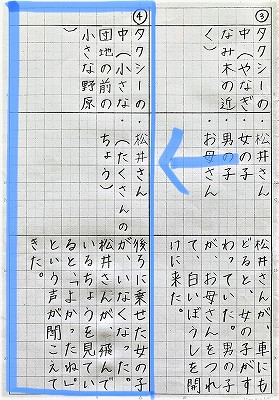 ③
タクシーの
中（やなぎ
なみ木の近
く）
・松井さん
・女の子
・男の子
・お母さん
松井さんが、車にも
どると、女の子がす
わっていた。男の子
が、お母さんをつれ
て、白いぼうしを開
けに来た。
④
タクシーの
中（小さな
団地の前の
小さな野原
）
・松井さん
・（たくさんの
ちょう）
後ろに乗せた女の子
が、いなくなった。
松井さんが、飛んで
いるちょうを見てい
ると、「よかったね。」
という声が聞こえて
きた。